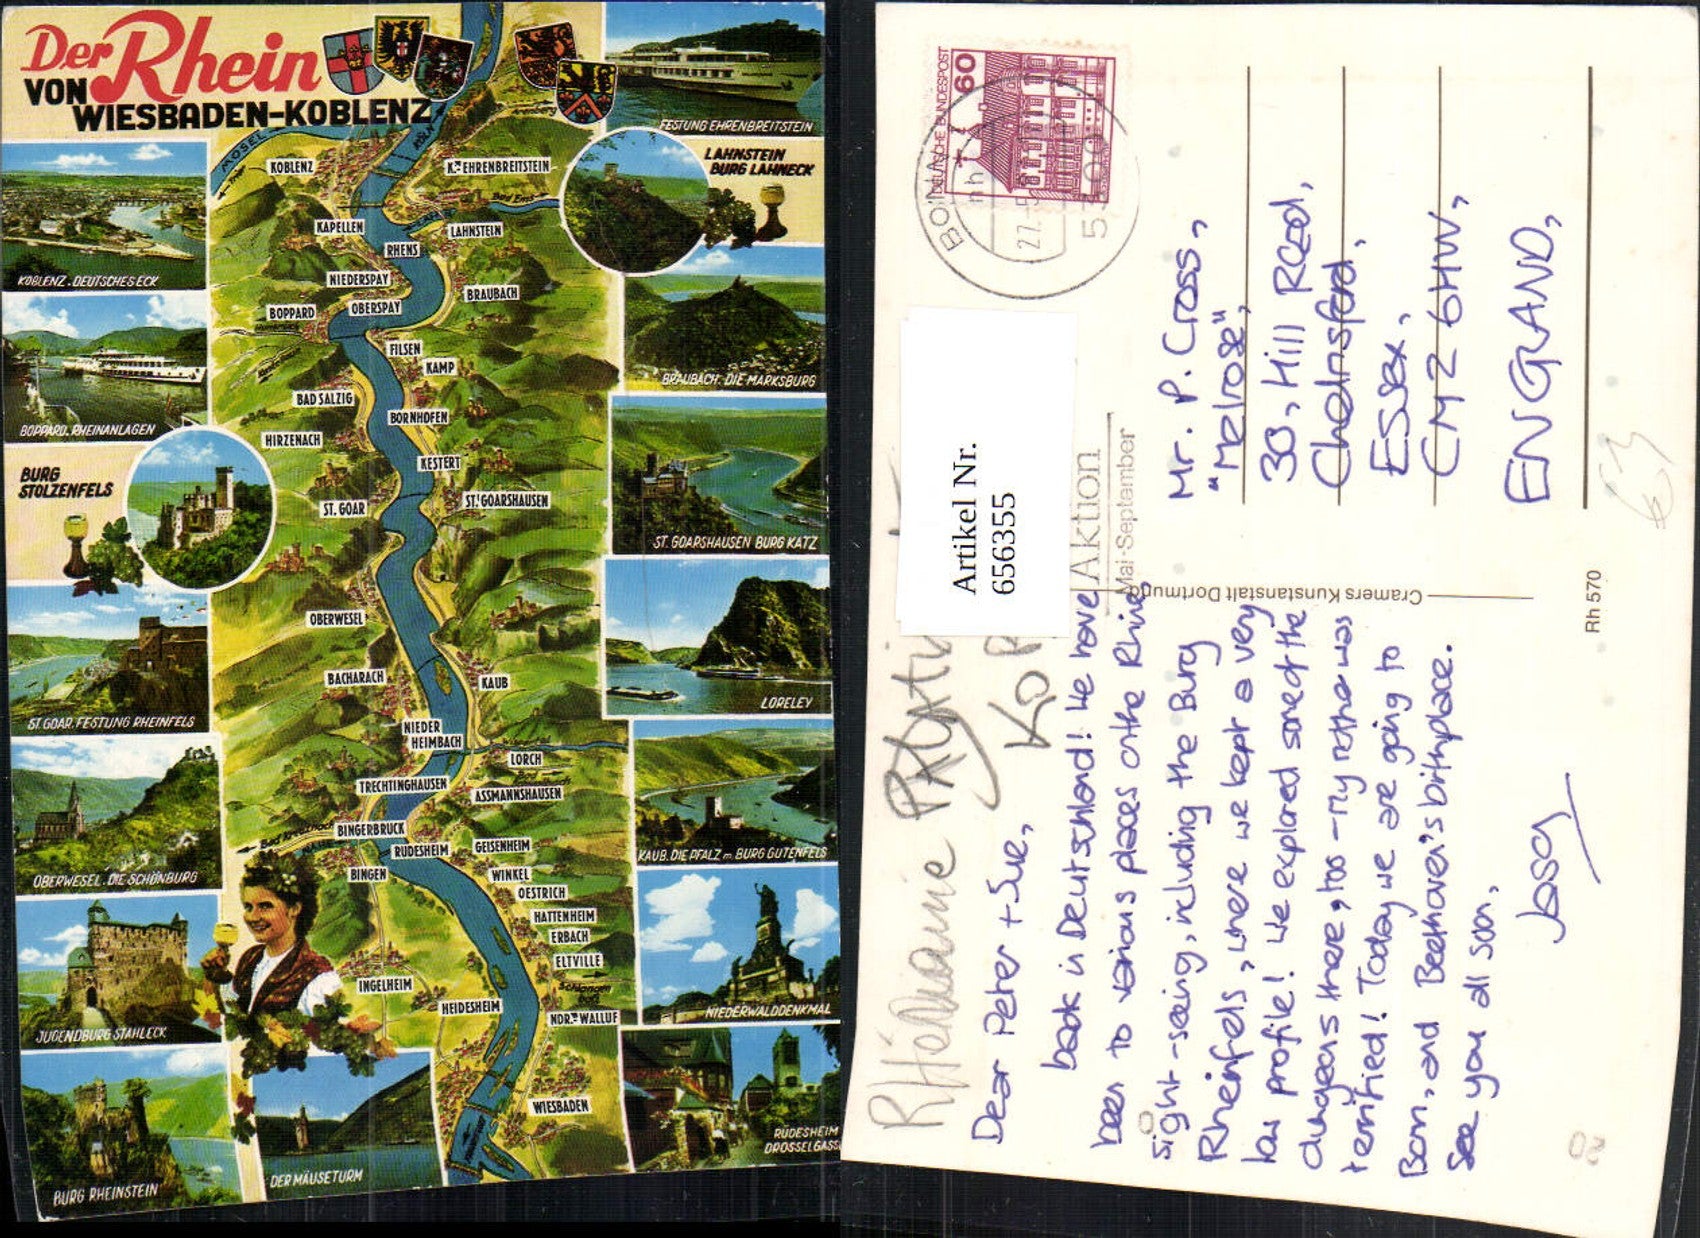 Der Rhein
VON
WIESBADEN-KOBLENZ
FESTUNG EHRENBREITSTEIN
LAHNSTEIN
BURG LAHNECK
KOBLENZ. DEUTSCHES ECK
BOPPARD. RHEINANLAGEN
BURG
STOLZENFELS
BRAUBACH. DIE MARKSBURG
ST. GOARSHAUSEN BURG KATZ
ST. GOAR. FESTUNG RHEINFELS
LORELEY
OBERWESEL. DIE SCHÖNBURG
KAUB. DIE PFALZ m. BURG GUTENFELS
JUGENDBURG STAHLECK
NIEDERWALDDENKMAL
BURG RHEINSTEIN
DER MÄUSETURM
RÜDESHEIM
DROSSELGASS
MOSEL
KÖLN
KOBLENZ
K.-EHRENBREITSTEIN
Bad Ems
KAPELLEN
LAHNSTEIN
RHENS
NIEDERSPAY
BRAUBACH
BOPPARD
OBERSPAY
FILSEN
KAMP
BAD SALZIG
BORNHOFEN
HIRZENACH
KESTERT
ST. GOAR
ST. GOARSHAUSEN
OBERWESEL
BACHARACH
KAUB
NIEDER
HEIMBACH
LORCH
TRECHTINGHAUSEN
ASSMANNSHAUSEN
Bad Kreuznach
NAHE
BINGERBRUCK
RÜDESHEIM
GEISENHEIM
BINGEN
WINKEL
OESTRICH
HATTENHEIM
ERBACH
ELTVILLE
INGELHEIM
Schlangenbad
HEIDESHEIM
NDR.-WALLUF
WIESBADEN
DEUTSCHE BUNDESPOST
60
BONN
27.-5
5300
Artikel Nr.
656355
Aktion
Mai-September
Rhénanie
Dear Peter + Sue,
back in Deutschland! We have
been to various places on the Rhine,
sight-seeing, including the Burg
Rheinfels, where we kept a very
low profile! We explored some of the
dungeons there, too - My mother was
terrified! Today we are going to
Bonn, and Beethoven's birthplace.
See you all soon,
Mr. P. Cross,
"Melrose",
30, Hill Road,
Chelmsford,
Essex,
CM2 6HW,
ENGLAND,
Cramers Kunstanstalt Dortmund
Rh 570
20